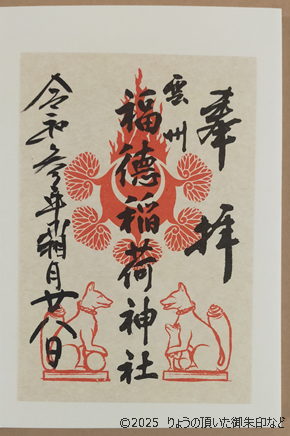 奉拝
雲州
福徳稲荷神社
令和六年翔月廿八日
©2025 りょうの頂いた御朱印など